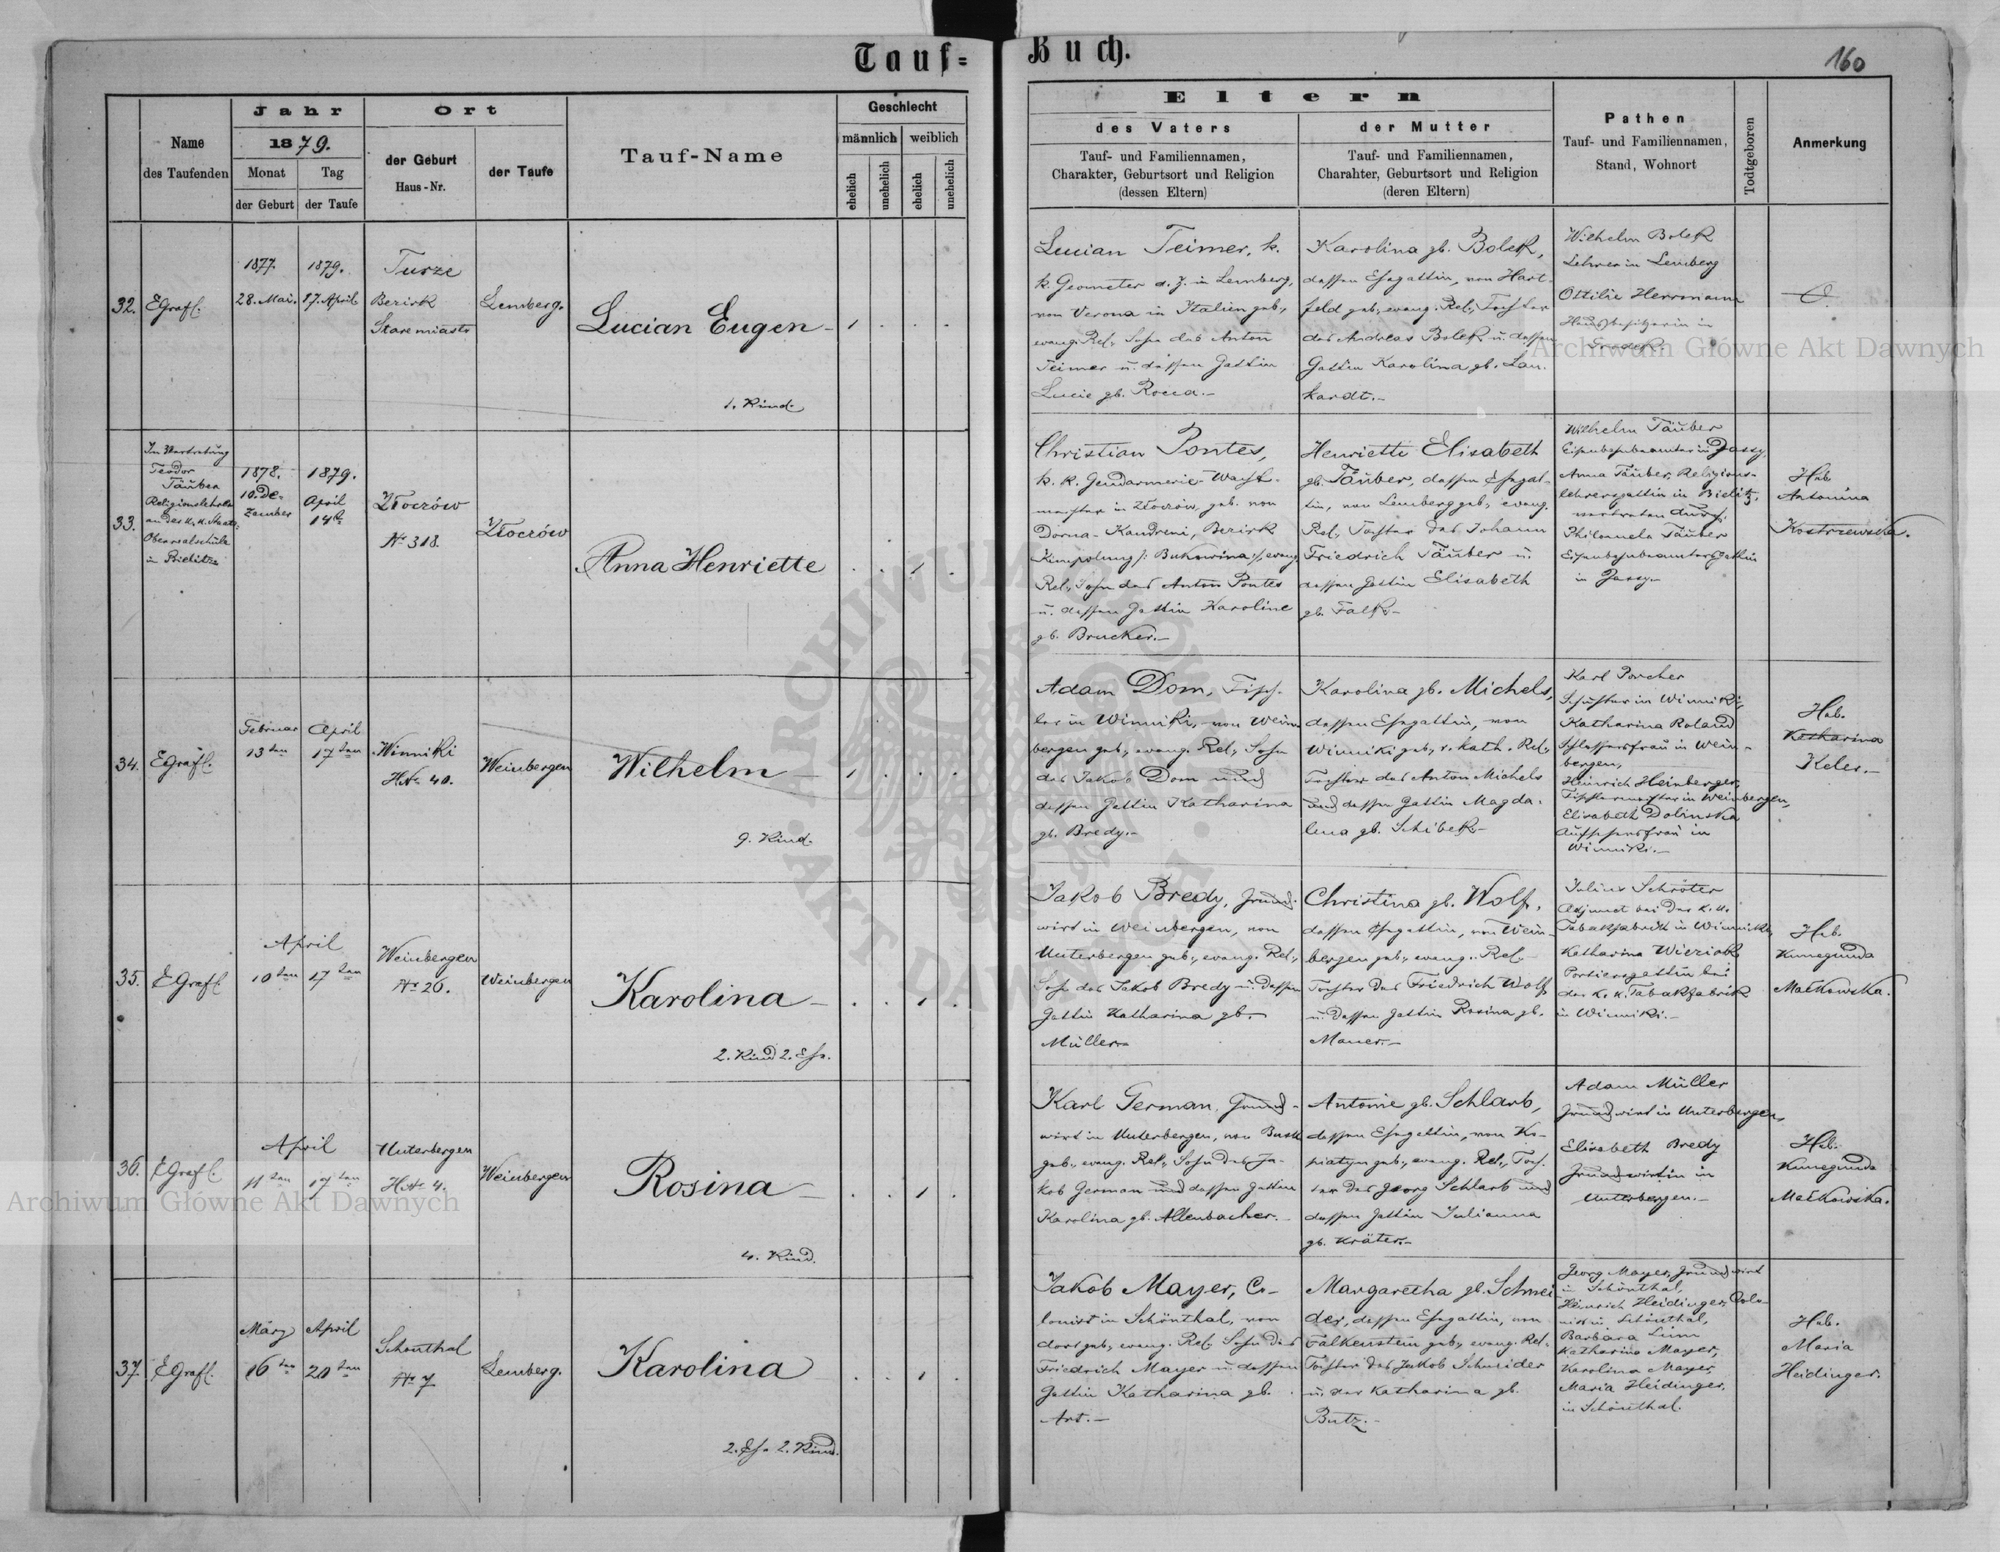 Tauf=
Buch.
160
Name
des Taufenden
Jahr
1879.
Monat
Tag
der Geburt
der Taufe
Ort
der Geburt
Haus-Nr.
der Taufe
Tauf-Name
Geschlecht
männlich
weiblich
ehelich
unehelich
ehelich
unehelich
Eltern
des Vaters
Tauf- und Familiennamen,
Charakter, Geburtsort und Religion
(dessen Eltern)
der Mutter
Tauf- und Familiennamen,
Charahter, Geburtsort und Religion
(deren Eltern)
Pathen
Tauf- und Familiennamen,
Stand, Wohnort
Todtgeboren
Anmerkung
32.
EGrafl.
1877.
28. Mai.
1879.
17. April
Turze
Bezirk
Stare miasto
Lemberg.
Lucian Eugen
1. Kind.
Lucian Teimer, k.
k. Geometer d. Z. in Lemberg,
von Verona in Italien geb.,
evang. Rel., Sohn des Anton
Teimer u. dessen Gattin
Lucie gb. Rocca.
Karolina gb. Bolek,
dessen Ehegattin, von Hart-
feld geb., evang. Rel., Tochter
des Andreas Bolek u. dessen
Gattin Karolina gb. Lan-
hardt.
Wilhelm Bolek
Lehrer in Lemberg
Ottilie Herrmann
Hausbesitzerin in
33.
In Vertretung
Teodor
Täuber
Religionslehrer
an der k. k. Staats-
Oberrealschule
in Bielitz
1878.
10. De-
zember
1879.
April
14t
Złoczów
Nr 318.
Złoczów
Anna Henriette
Christian Pontes,
k. k. Gendarmerie-Wacht-
meister in Złoczów, geb. von
Dorna-Kandreni, Bezirk
Kimpolung /: Bukowina :/, evang.
Rel., Sohn des Anton Pontes
u. dessen Gattin Karoline
gb. Brucker.
Henriette Elisabeth
gb. Täuber, dessen Ehegat-
tin, von Lemberg geb., evang.
Rel., Tochter des Johann
Friedrich Täuber u.
dessen Gattin Elisabeth
gb. Falk.
Wilhelm Täuber
Eisenbahnbeamter in Jassy,
Anna Täuber, Religions-
lehrersgattin in Bielitz,
vertreten durch
Philomela Täuber
Eisenbahnbeamtersgattin
in Jassy
Heb.
Antonina
Kostrzewska.
34.
EGrafl.
Februar
13ten
April
17ten
Winniki
HNr 40.
Weinbergen
Wilhelm
9. Kind.
Adam Dom, Tisch-
ler in Winniki, von Wein-
bergen geb., evang. Rel., Sohn
des Jakob Dom und
dessen Gattin Katharina
gb. Bredy.
Karolina gb. Michels,
dessen Ehegattin, von
Winniki geb., r. kath. Rel.,
Tochter des Anton Michels
und dessen Gattin Magda-
lena gb. Schibek
Karl Porcher
Schuster in Winniki,
Katharina Roland
Schlossersfrau in Wein-
bergen,
Heinrich Heinberger,
Tischlermeister in Weinbergen,
Elisabeth Dolinska
Aufsehersfrau in
Winniki.
Heb.
Katharina
Keler.
35.
EGrafl.
April
10ten
17ten
Weinbergen
Nr 26.
Weinbergen
Karolina
2. Kind 2. Ehe.
Jakob Bredy, Grund-
wirt in Weinbergen, von
Unterbergen geb., evang. Rel.,
Sohn des Jakob Bredy u. dessen
Gattin Katharina gb.
Müller
Christina gb. Wolf,
dessen Ehegattin, von Wein-
bergen geb., evang. Rel.
Tochter des Friedrich Wolf
u. dessen Gattin Rosina gb.
Mauer.
Julius Schröter
Adjunct bei der k. k.
Tabakfabrik in Winniki,
Katharina
Portiersgattin bei
der k. k. Tabakfabrik
in Winniki.
Heb.
Kunegunda
Maćkowska.
36.
EGrafl.
April
11ten
17ten
Unterbergen
HNr 4.
Weinbergen
Rosina
4. Kind.
Karl German, Grund-
wirt in Unterbergen, von Busk
geb., evang. Rel., Sohn des Ja-
kob German und dessen Gattin
Karolina gb. Allenbacher.
Antonie gb. Schlarb,
dessen Ehegattin, von Ko-
piatyn geb., evang. Rel., Toch-
ter des Georg Schlarb und
dessen Gattin Julianna
gb. Kräter.
Adam Müller
Grundwirt in Unterbergen,
Elisabeth Bredy
Grundwirtin in
Unterbergen.
Heb.
Kunegunda
Maćkowska.
37.
EGrafl.
März
16ten
April
20ten
Schönthal
Nr 7
Lemberg.
Karolina
2. Ehe 2. Kind.
Jakob Mayer, Co-
lonist in Schönthal, von
dort geb., evang. Rel. Sohn des
Friedrich Mayer u. dessen
Gattin Katharina gb.
Art.
Margaretha gb. Schnei-
der, dessen Ehegattin, von
Falkenstein geb., evang. Rel.
Tochter des Jakob Schneider
u. der Katharina gb.
Butz.
Georg Mayer, Grundwirt
in Schönthal,
Heinrich Heidinger, Colo-
nist in Schönthal,
Barbara Linn
Katharina Mayer,
Karolina Mayer
Maria Heidinger,
in Schönthal.
Heb.
Maria
Heidinger.
Archiwum Główne Akt Dawnych
Archiwum Główne Akt Dawnych
ARCHIWUM GŁÓWNE
AKT DAWNYCH